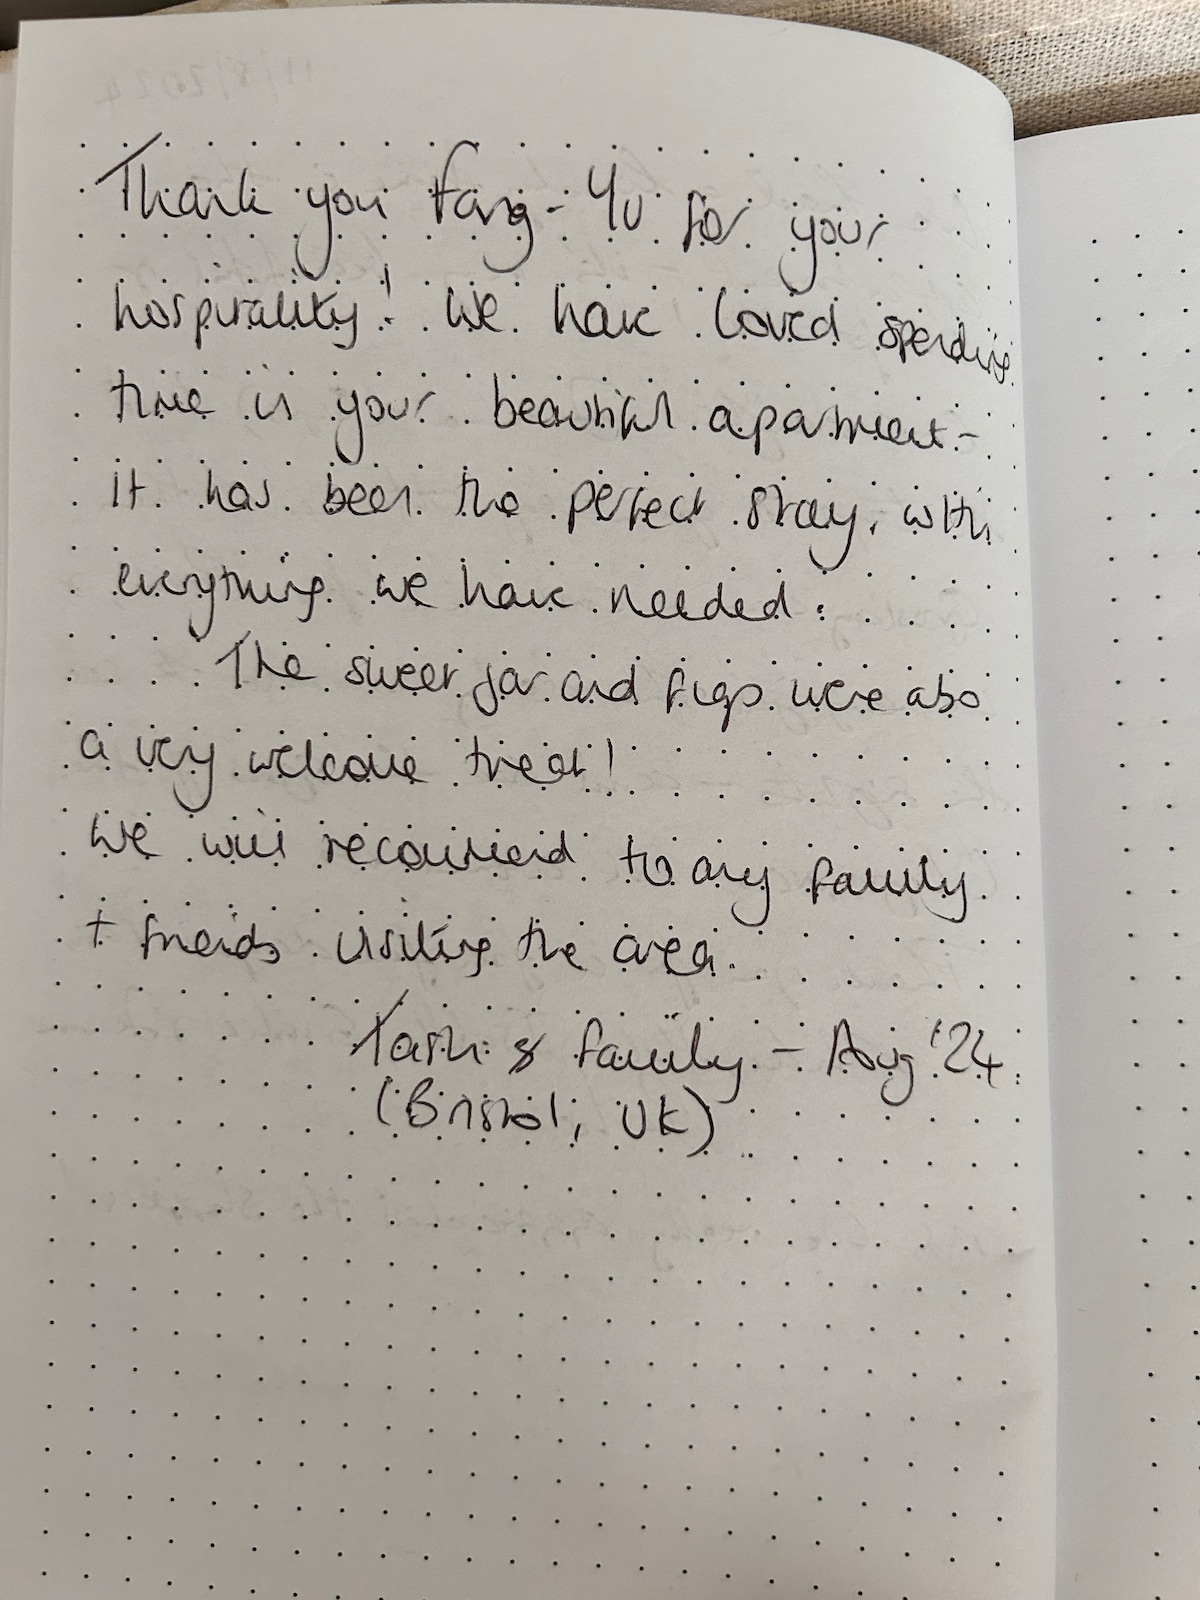 Thank you Fang-Yu for your
hospitality! We have loved spending
time in your beautiful apartment -
it has been the perfect stay, with
everything we have needed.
The sweet jar and figs were also
a very welcome treat!
We will recommend to any family
+ friends visiting the area.
Tash & family - Aug '24
(Bristol, UK)
11/8/2024